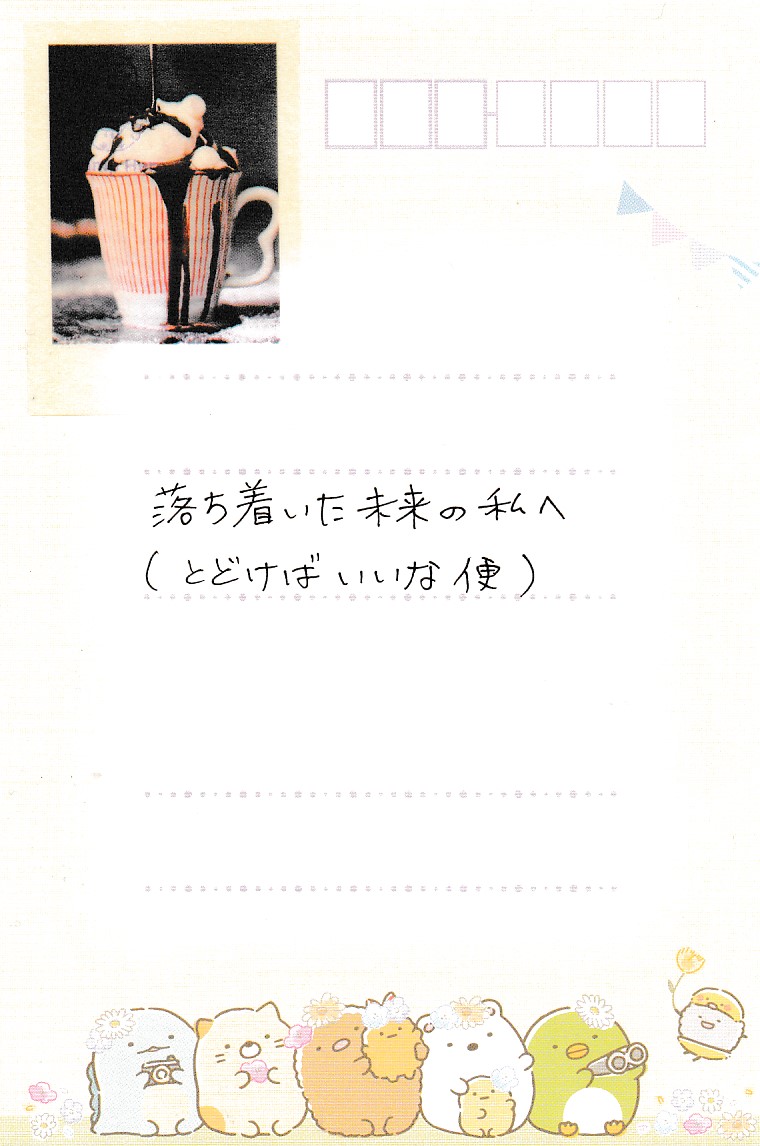 落ち着いた未来の私へ
(とどけばいいな便)